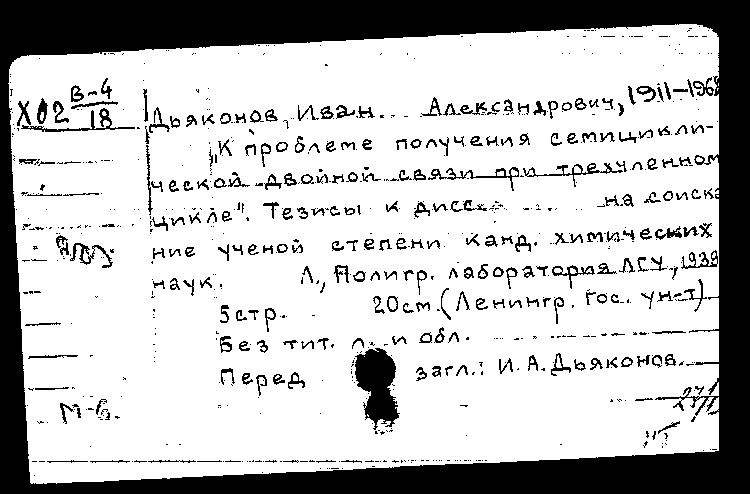 Х02 В-4/18
Дьяконов, Иван Александрович, 1911-196
„К проблеме получения семицикли-
ческой двойной связи при трехчленном
цикле". Тезисы к дисс. на соиска
ние ученой степени канд. химических
наук. Л., Полигр. лаборатория ЛГУ, 1939
5 стр. 20см. (Ленингр. гос. ун-т)
Без тит. л. и обл.
Перед загл.: И. А. Дьяконов.
М-6.